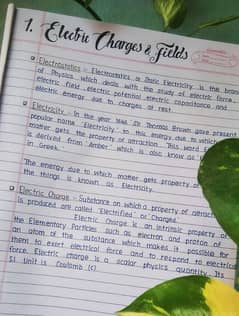 1. Electric Charges & Fields
Electrostatics :- Electrostatics or Static Electricity is the branch
of Physics which deals with the study of electric force,
electric field, electric potential, electric capacitance and
electric energy due to charges at rest.
Electricity :- In the year Thomas Brown gave present
popular name 'Electricity' to this energy due to which
matter gets the property of attraction. This word
is derived from 'Amber' which is also know as
in Greek.
The energy due to which matter gets property of
the things is known as Electricity.
Electric Charge :- Substance on which a property of attrac
is produced are called 'Electrified' or 'Charged'.
Electric Charge is an intrinsic property of
the Elementary Particles such as electron and proton of
an atom of the substance which makes it possible for
them to exert electrical force and to respond to electrical
force. Electric charge is a scalar physics quantity. Its
SI Unit is Coulomb (C).